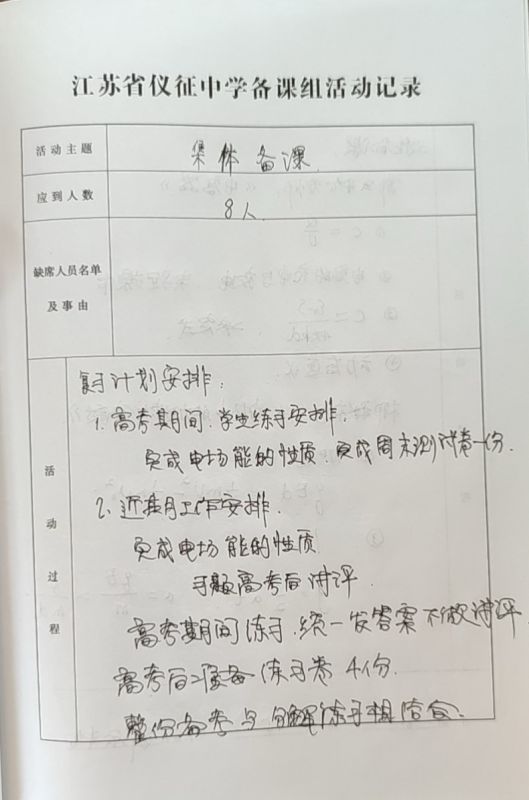 江苏省仪征中学备课组活动记录
活动主题 集体备课
应到人数 8人
缺席人员名单
及事由
活动过程
复习计划安排:
1. 高考期间:学生练习安排.
完成电场能的性质. 完成周末测试卷一份.
2. 近期工作安排.
完成电场能的性质
高考后讲评
高考期间练习,统一发答案不做讲评
高考后准备练习卷4份.
整份备考与分解练习相结合.